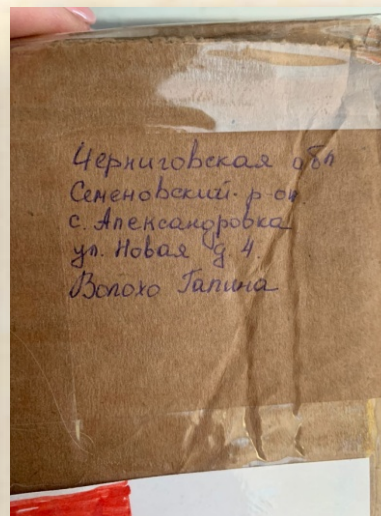 Черниговская обл
Семеновский р-он.
с. Александровка
ул. Новая д. 4.
Волохо Галина